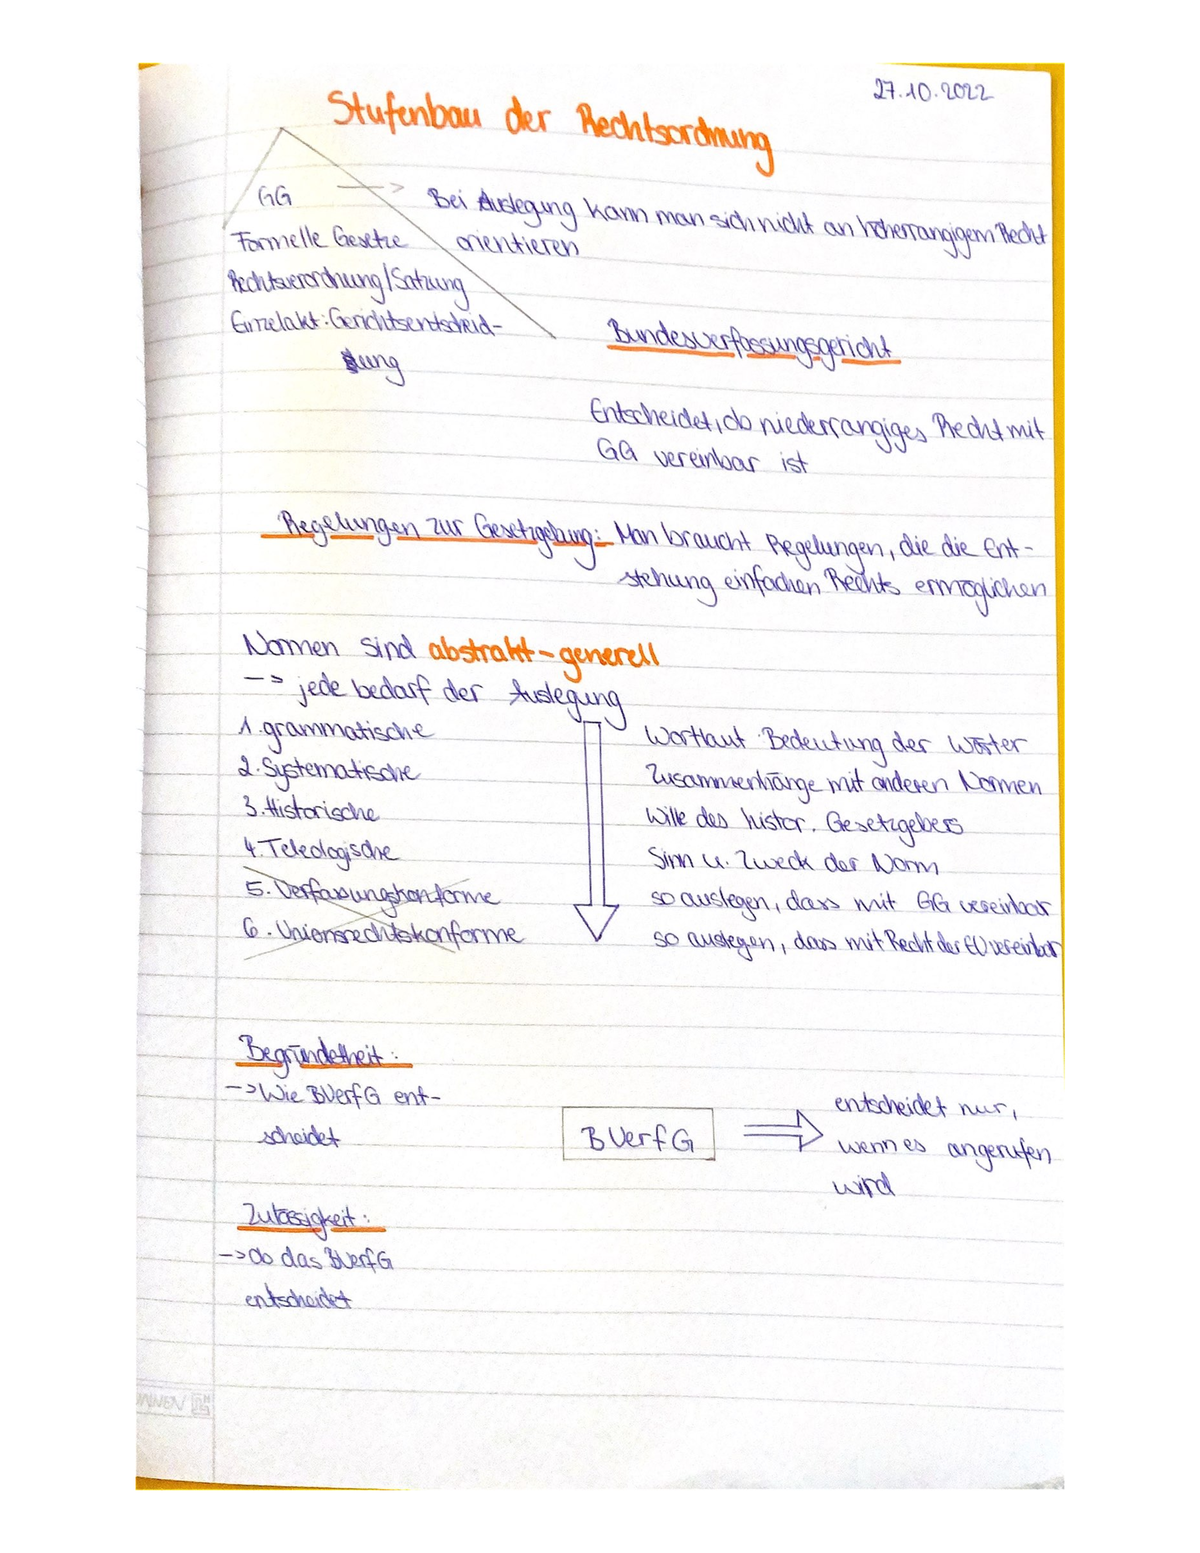 27.10.2022
Stufenbau der Rechtsordnung
GG --> Bei Auslegung kann man sich nicht an höherrangigem Recht
orientieren
Formelle Gesetze
Rechtsverordnung/Satzung
Einzelakt: Gerichtsentscheid-
ung
Bundesverfassungsgericht
Entscheidet, ob niederrangiges Recht mit
GG vereinbar ist
Regelungen zur Gesetzgebung: Man braucht Regelungen, die die Ent-
stehung einfachen Rechts ermöglichen
Normen sind abstrakt-generell
--> jede bedarf der Auslegung
1. grammatische
Wortlaut Bedeutung der Wörter
2. Systematische
Zusammenhänge mit anderen Normen
3. Historische
Wille des histor. Gesetzgebers
4. Teleologische
Sinn u. Zweck der Norm
5. Verfassungskonforme
so auslegen, dass mit GG vereinbar
6. Unionsrechtskonforme
so auslegen, dass mit Recht der EU vereinbar
Begründetheit:
-> Wie BVerfG ent-
scheidet
BVerfG
entscheidet nur,
wenn es angerufen
wird
Zulässigkeit:
-> Ob das BVerfG
entscheidet